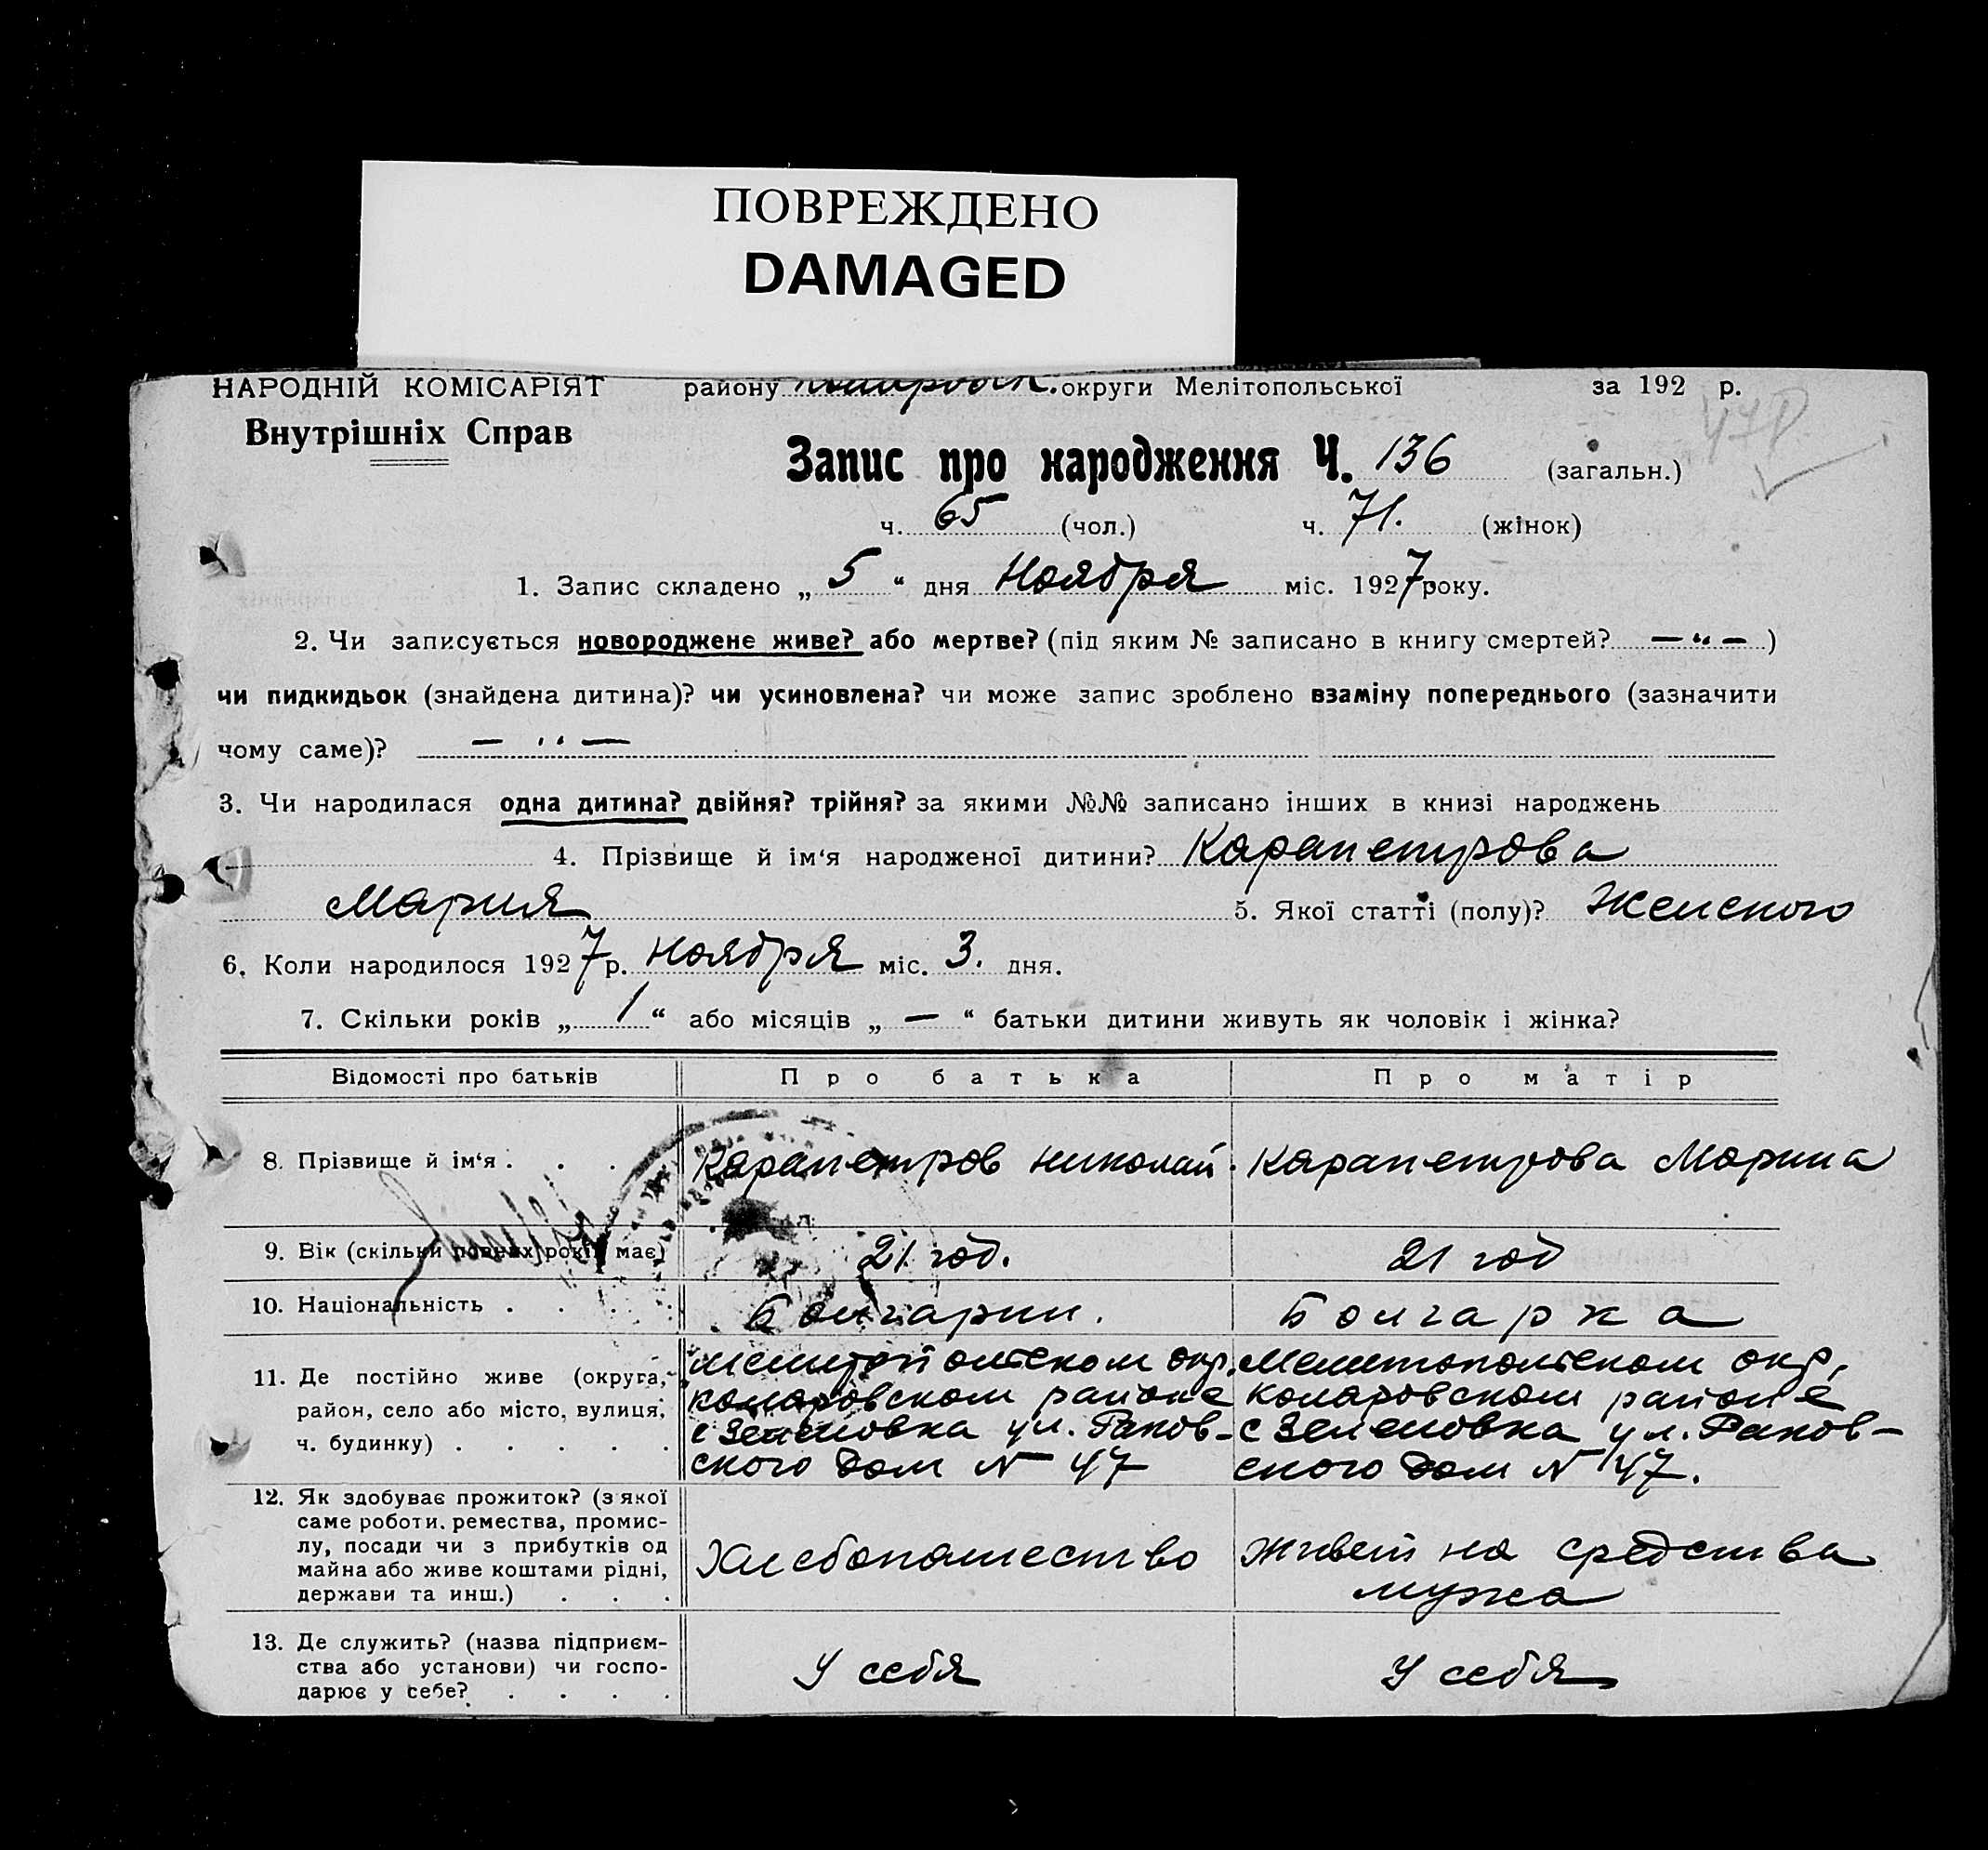 ПОВРЕЖДЕНО
DAMAGED
НАРОДНІЙ КОМІСАРІЯТ району округи Мелітопольської за 192 р.
Внутрішніх Справ
Запис про народження Ч. 136 (загальн.)
ч. 65 (чол.) ч. 71. (жінок)
1. Запис складено „ 5 “ дня Ноября міс. 1927 року.
2. Чи записується новороджене живе? або мертве? (під яким № записано в книгу смертей? — „ — )
чи пидкидьок (знайдена дитина)? чи усиновлена? чи може запис зроблено взаміну попереднього (зазначити
чому саме)? — „ —
3. Чи народилася одна дитина? двійня? трійня? за якими №№ записано інших в книзі народжень
4. Прізвище й ім‘я народженої дитини? Карапетрова
Мария 5. Якої статті (полу)? Женского
6. Коли народилося 1927 р. Ноября міс. 3. дня.
7. Скільки років „ 1 “ або місяців „ — “ батьки дитини живуть як чоловік і жінка?
Відомості про батьків Про батька Про матір
8. Прізвище й ім‘я . . . Карапетров Николай. Карапетрова Марина
9. Вік (скільки повних років має) 21 год. 21 год
10. Національність . . . . Болгарин. Болгарка
11. Де постійно живе (округа, Мелитопольском окр. Мелитопольском окр,
район, село або місто, вулиця, коларовском районе коларовском районе
ч. будинку) . . . . . с Зеленовка ул. Раков- с Зеленовка ул. Раков-
ского дом N 47 ского дом N 47.
12. Як здобуває прожиток? (з якої
саме роботи. ремества, промис-
лу, посади чи з прибутків од Хлебопашество живет на средства
майна або живе коштами рідні, мужа
держави та инш.) . . .
13. Де служить? (назва підприєм-
ства або установи) чи госпо- У себя У себя
дарює у себе? . . . .